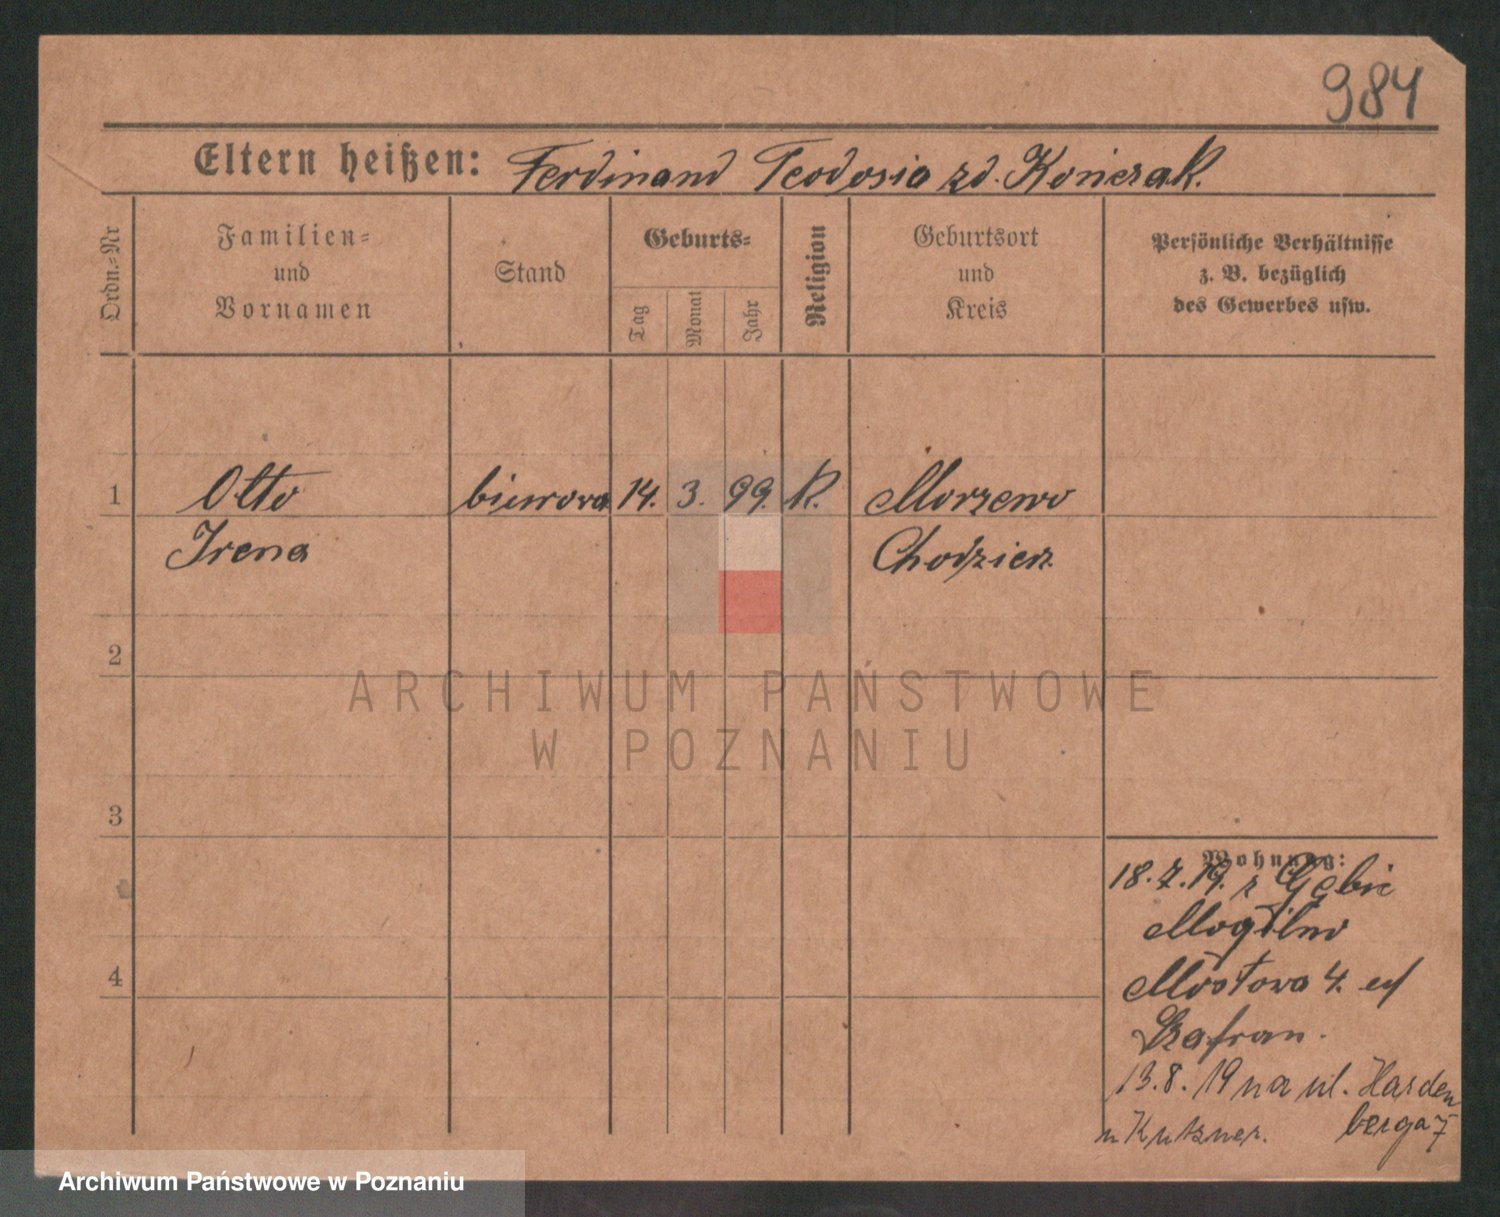 984
Eltern heißen: Ferdinand Teodosia zd. Konierak.
Ordn.=Nr
Familien=
und
Vornamen
Stand
Geburts=
Tag
Monat
Jahr
Religion
Geburtsort
und
Kreis
Persönliche Verhältnisse
z. B. bezüglich
des Gewerbes usw.
1 Otto biurowa 14. 3. 99. K. Morzewo
Irena Chodzież
2
ARCHIWUM PAŃSTWOWE
W POZNANIU
3
Wohnung:
18.7.19. z Gębic
Mogilno
4
Mostowa 4.
Szafran.
13.8.19 na ul. Harden
berga 7
u Kutzner.
Archiwum Państwowe w Poznaniu